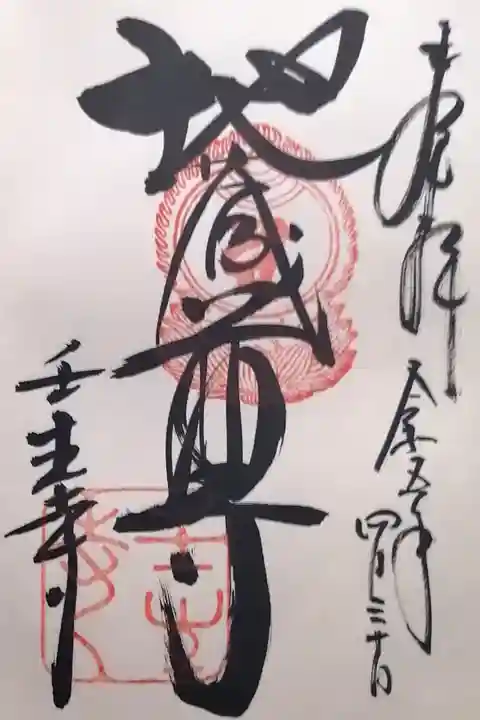 奉拝
令和五年
四月三十日
地蔵尊
壬生寺